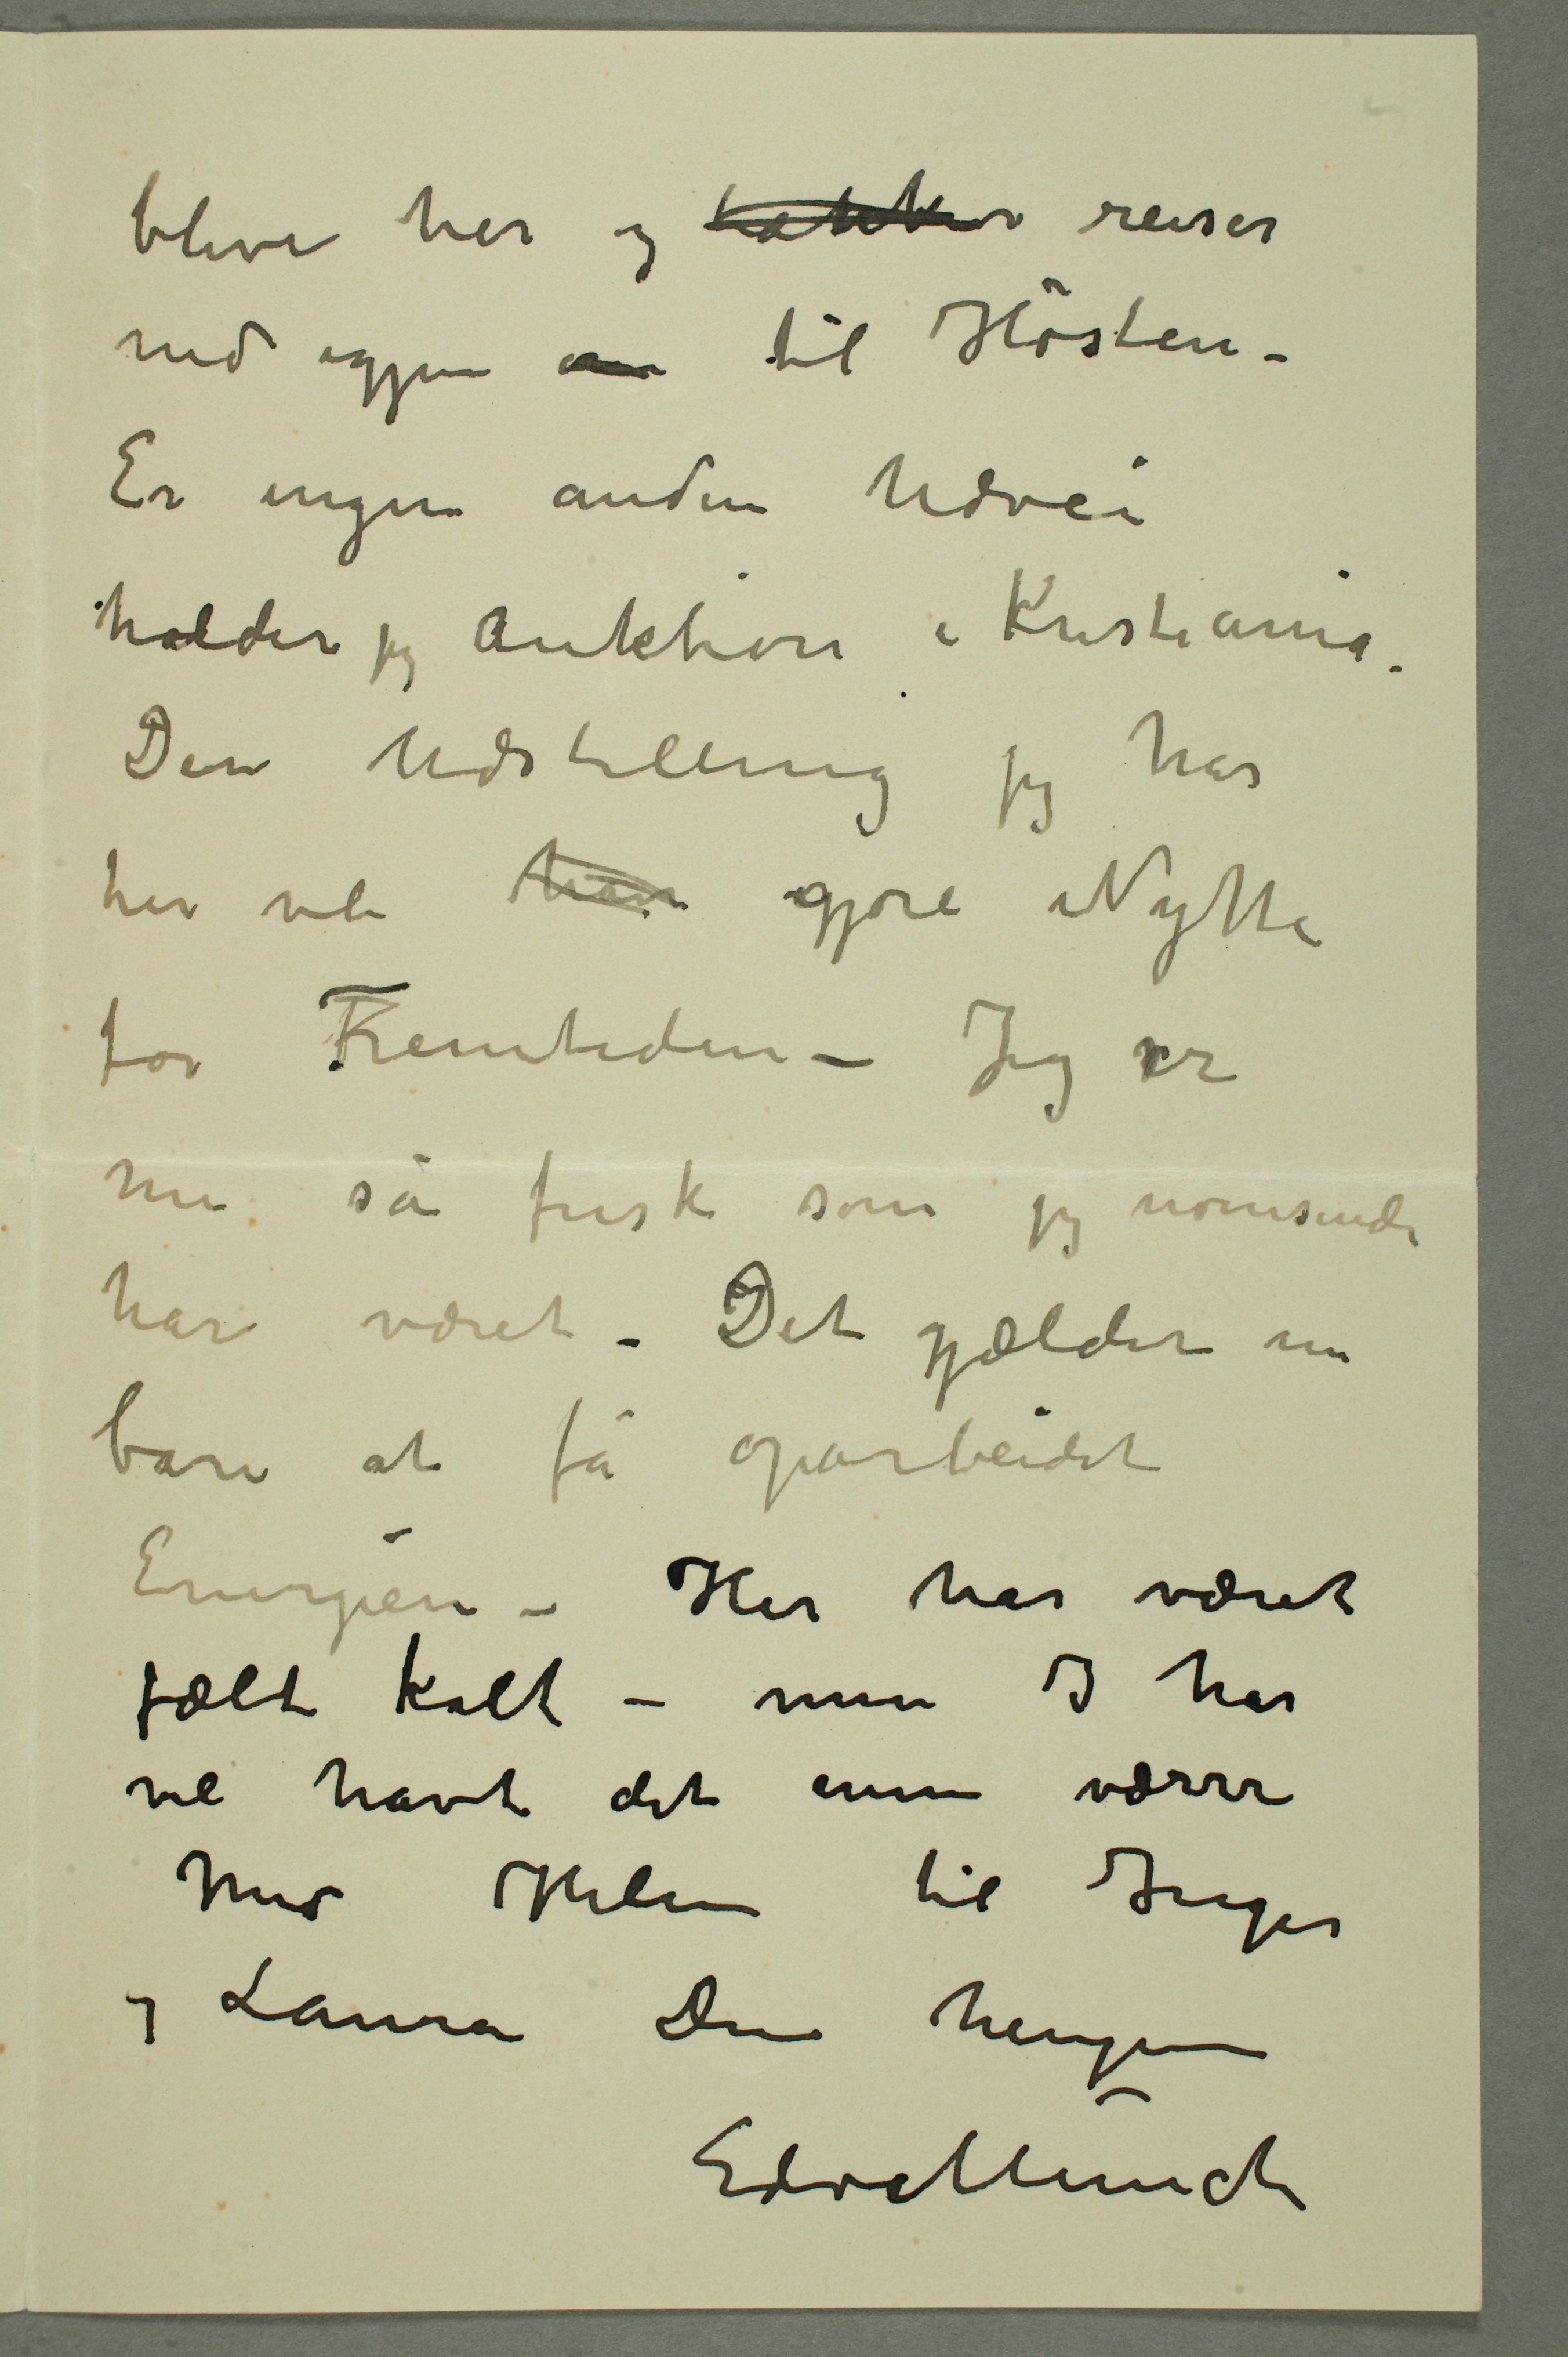 blive her og tænker reiser
ned igjen om til Hösten –
Er ingen anden Udvei
holder jeg Auktion i Kristiania.
Den Udstilling jeg har
her vil have gjöre Nytte
for Fremtiden – Jeg er
nu så frisk som jeg nomsinde
har været – Det gjælder nu
bare at få oparbeidet
Energien – Her har været
fælt kalt – men I har
vel havt det enn værre
Med Hilsen til Inger
og Laura Din hengivne
Edv Munch